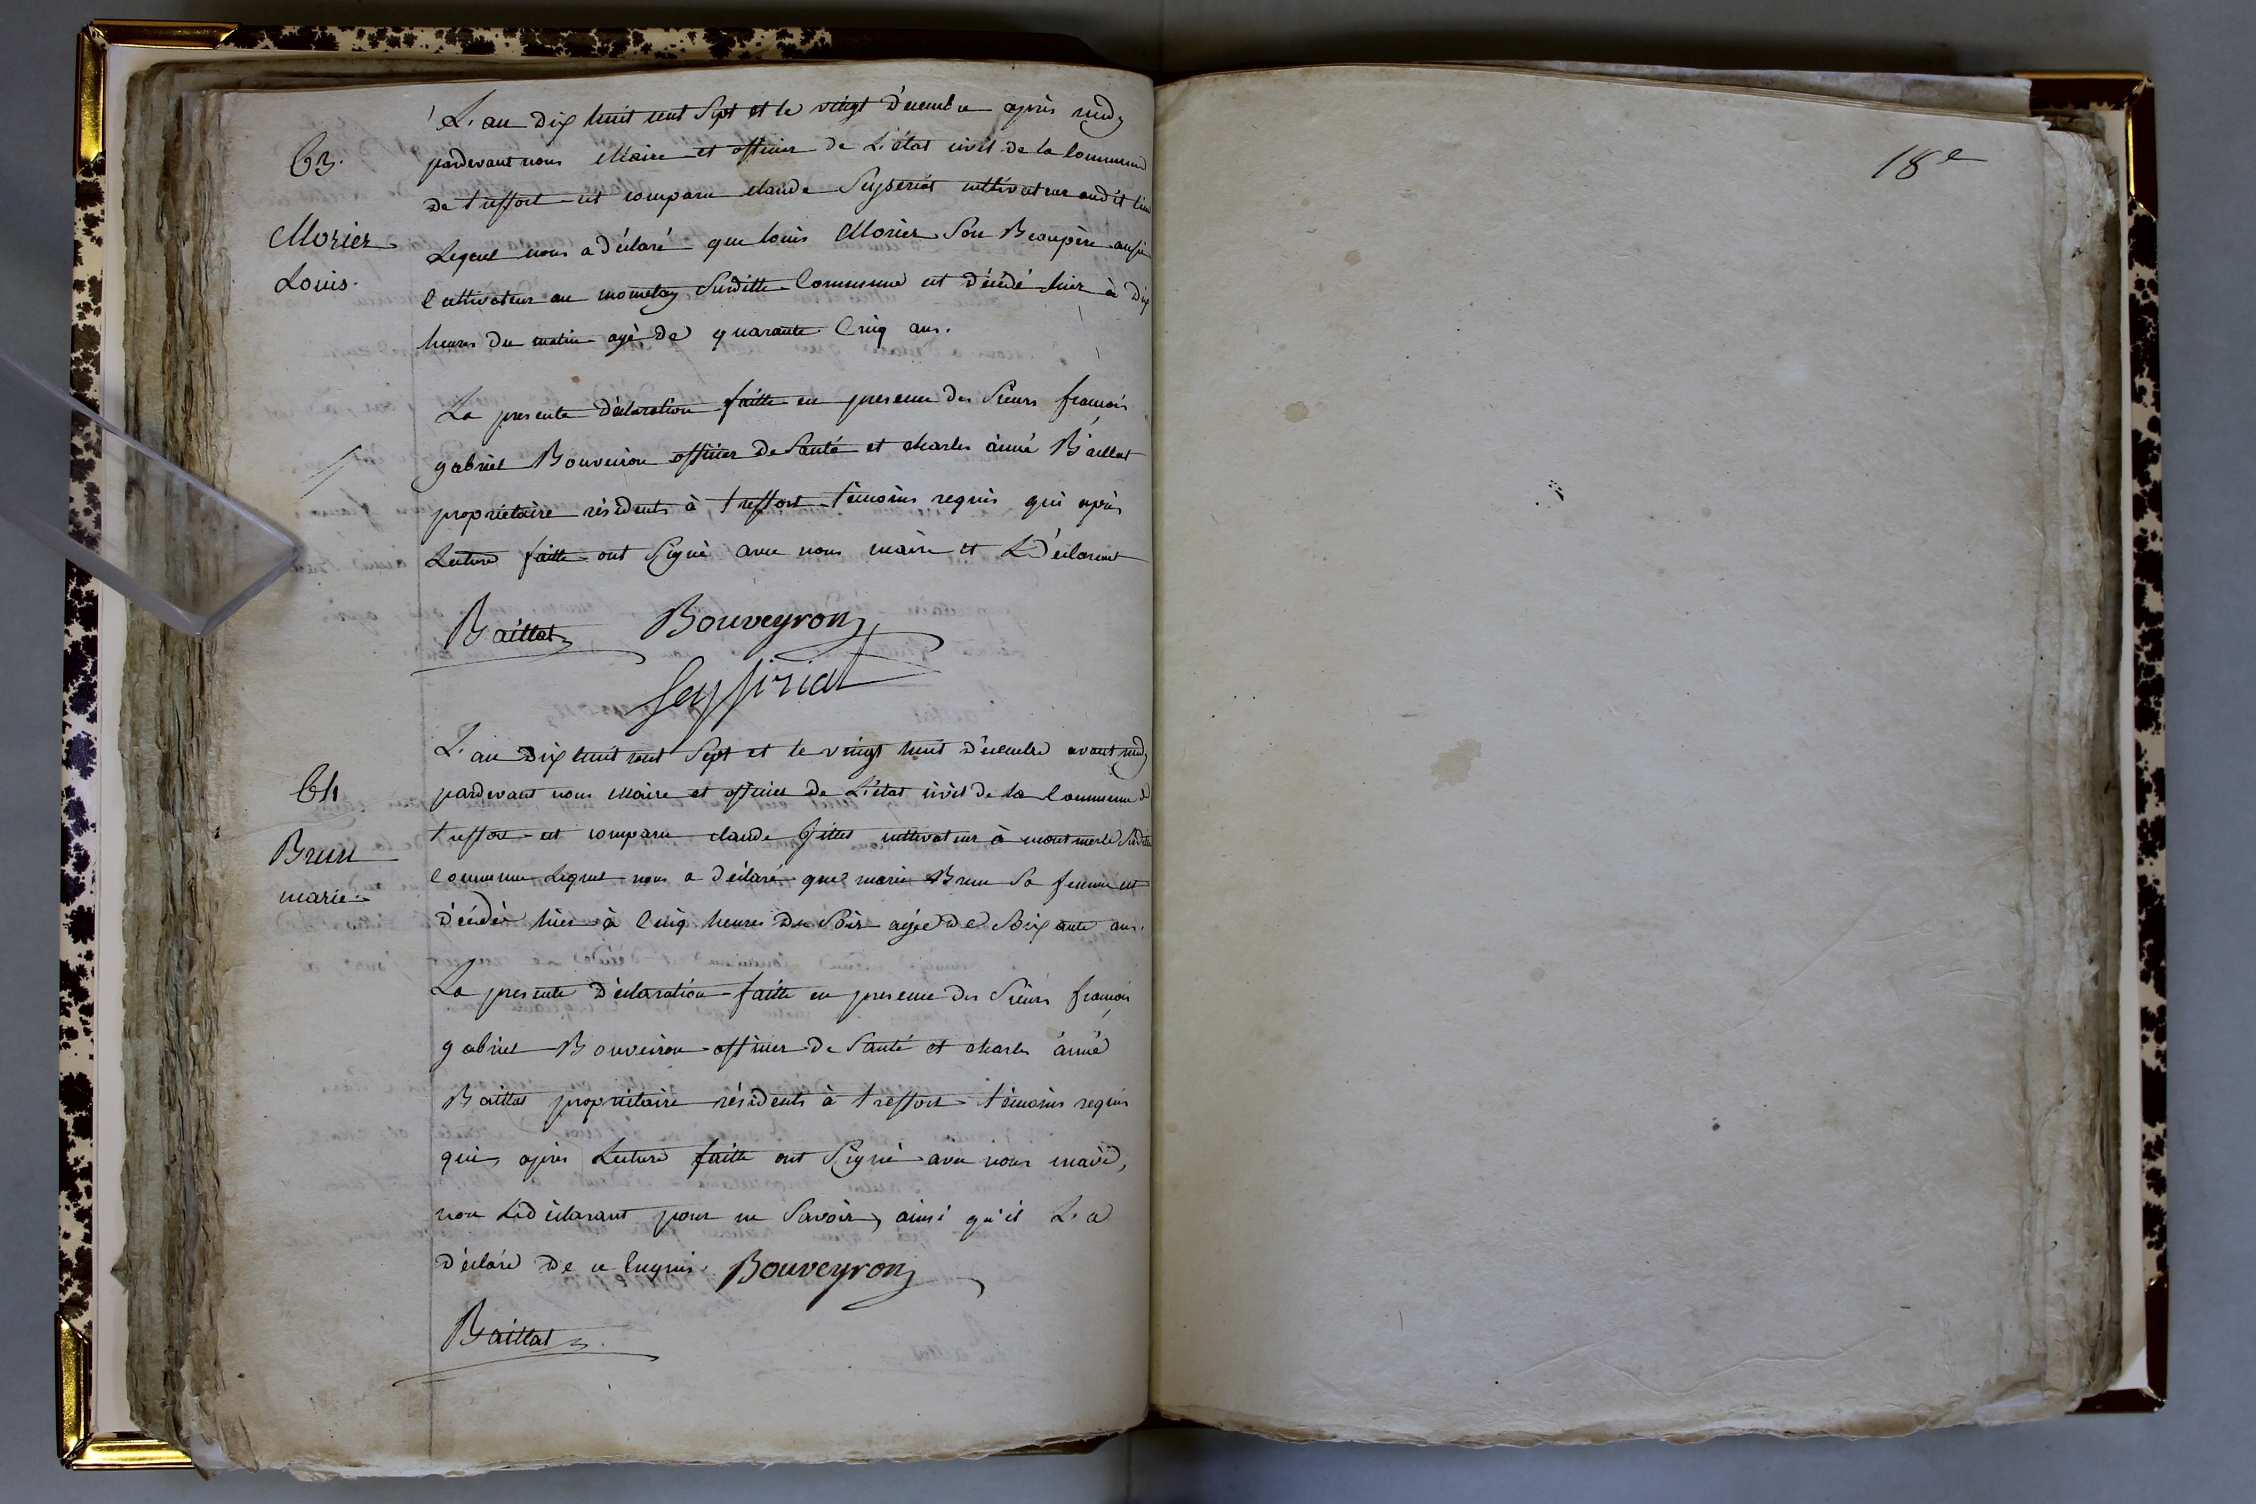 63.
Morier
Louis.
L'an dix huit cent Sept et le vingt décembre après midy
pardevant nous Maire et officier de L'état civil de la Commune
de treffort est comparu claude Seyseriat cultivateur audit lieu
Lequel nous a déclaré que louis Morier Son Beaupère aussi
Cultivateur au susditte Commune est décédé hier à dix
heures du matin agé de quarante Cinq ans.
La presente déclaration faitte en presence des Sieurs françois
gabriel Bouveiron officier de Santé et charles aimé Baillat
propriétaire résidents à treffort témoins requis qui après
Lecture faitte ont Signé avec nous maire et Le Déclarant
Baillat Bouveyron
Seyssiriat
64
Brun
marie.
L'an dix huit cent Sept et le vingt huit décembre avant midy
pardevant nous Maire et officier de L'état civil de la Commune de
treffort est comparu claude cultivateur à montmerle Susditte
Commune Lequel nous a déclaré que marie Brun Sa femme est
décédée hier à Cinq heures du Soir agée de Soixante ans.
La presente Déclaration faitte en presence des Sieurs françois
gabriel Bouveiron officier de Santé et charles aimé
Baillat propriétaire résidents à treffort témoins requis
qui, après Lecture faitte ont Signé avec nous maire,
non Le déclarant pour ne Savoir, ainsi qu'il L'a
Déclaré De ce Enquis. Bouveyron
Baillat
18e